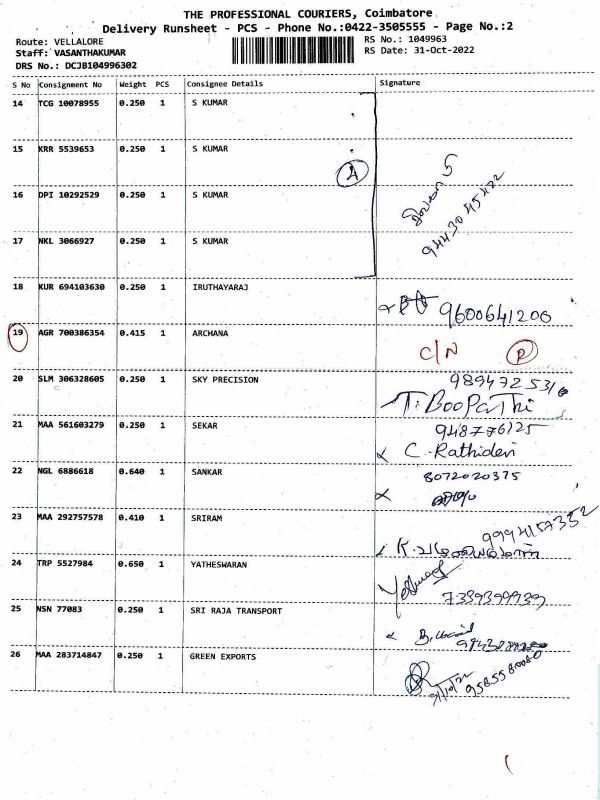 THE PROFESSIONAL COURIERS, Coimbatore
Delivery Runsheet - PCS - Phone No.:0422-3505555 - Page No.:2
Route: VELLALORE RS No.: 1049963
Staff: VASANTHAKUMAR RS Date: 31-Oct-2022
DRS No.: DCJB104996302
S No Consignment No Weight PCS Consignee Details Signature
14 TCG 10078955 0.250 1 S KUMAR
15 KRR 5539653 0.250 1 S KUMAR
4
16 DPI 10292529 0.250 1 S KUMAR
9443045422
17 NKL 3066927 0.250 1 S KUMAR
18 KUR 694103630 0.250 1 IRUTHAYARAJ
9600641206
19 AGR 700386354 0.415 1 ARCHANA
C/N R
20 SLM 306328605 0.250 1 SKY PRECISION
T. BooPaThi
21 MAA 561603279 0.250 1 SEKAR
9487776125
C. Rathidevi
22 NGL 6886618 0.640 1 SANKAR
8072020375
23 MAA 292757578 0.410 1 SRIRAM
9994157352
24 TRP 5527984 0.650 1 YATHESWARAN
25 NSN 77083 0.250 1 SRI RAJA TRANSPORT
26 MAA 283714847 0.250 1 GREEN EXPORTS
9585580080